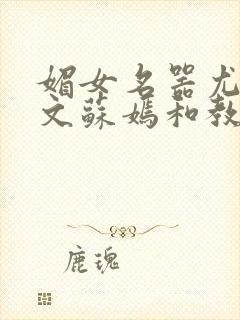 媚女名器尤
文蘇媽和教
鹿瑰